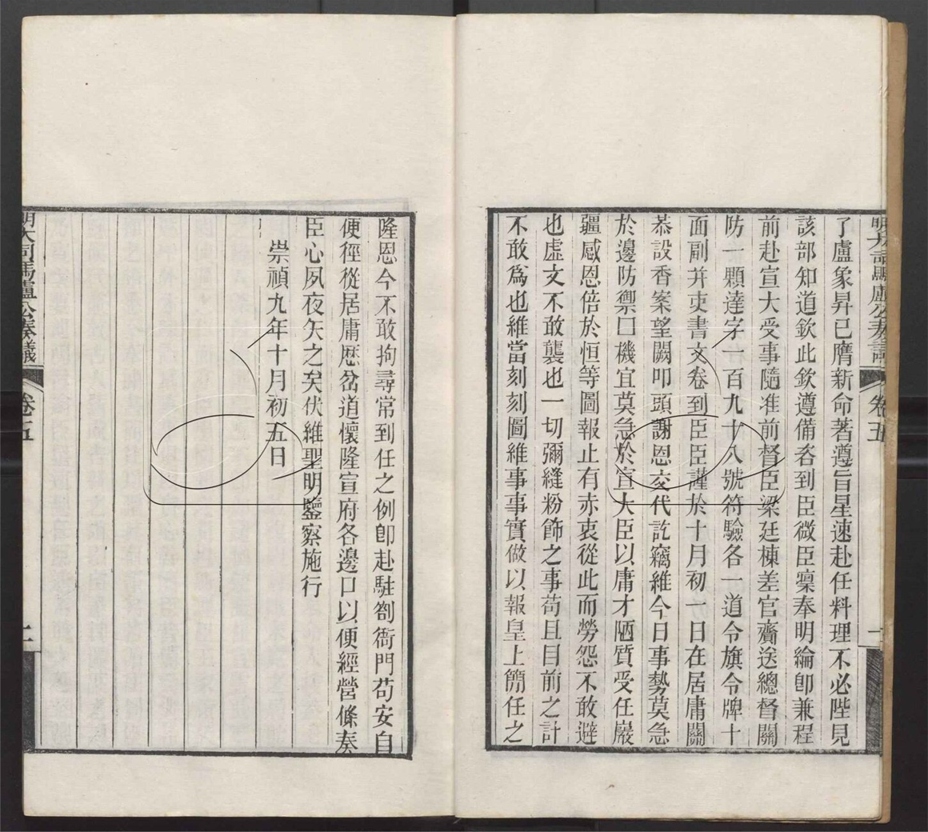 明大司馬盧公奏議 卷五 一
了盧象昇已膺新命著遵旨星速赴任料理不必陛見
該部知道欽此欽遵備咨到臣微臣稟奉明綸卽兼程
前赴宣大受事隨准前督臣梁廷棟差官齎送總督關
防一顆達字一百九十八號符驗各一道令旗令牌十
面副并吏書文卷到臣臣謹於十月初一日在居庸關
恭設香案望闕叩頭謝恩交代訖竊維今日事勢莫急
於邊防禦口機宜莫急於宣大臣以庸才陋質受任巖
疆感恩倍於恒等圖報止有赤衷從此而勞怨不敢避
也虛文不敢襲也一切彌縫粉飾之事苟且目前之計
不敢爲也維當刻刻圖維事事實做以報皇上簡任之
隆恩今不敢拘尋常到任之例卽赴駐劄衙門苟安自
便徑從居庸歷岔道懷隆宣府各邊口以便經營條奏
臣心夙夜矢之矣伏維聖明鑒察施行
崇禎九年十月初五日
明大司馬盧公奏議 卷五 二